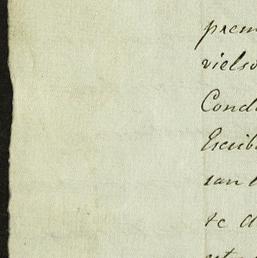 prem
vielso
Cond
Escrib
san
te d